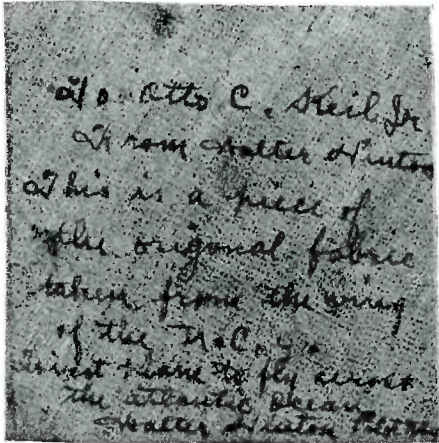 To Otto C. Keil Jr
From Walter Hinton
This is a piece of
the original fabric
taken from the wing
of the N.C.4.
first plane to fly across
the atlantic Ocean
Walter Hinton